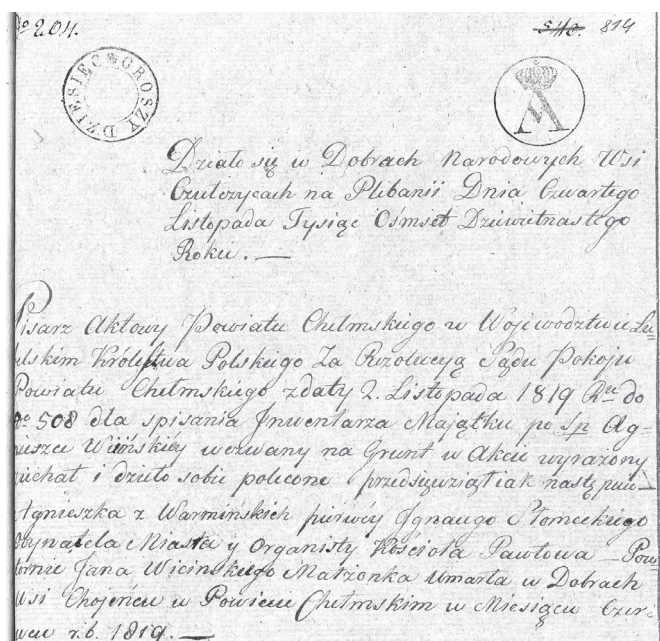 No 204.
540. 814
DZIESIEC GROSZY
Działo się w Dobrach Narodowych Wsi
Czułczycach na Plebanii Dnia Czwartego
Listopada Tysiąc Ośmset Dziewiętnastego
Roku. —
Pisarz Aktowy Powiatu Chełmskiego w Wojewodztwie Lu-
belskim Królestwa Polskiego Za Rezolucyą Sądu Pokoju
Powiatu Chełmskiego z daty 2. Listopada 1819 Ru do
No 508 dla spisania Inwentarza Majątku po sp Ag-
nieszce Wicińskiey wezwany na Grunt w Akcie wyrażony
ziechał i dzieło sobie polecone przedsięwziął iak nastę puie —
Agnieszka z Warmińskich pierwey Ignacego Słomeckiego
Obywatela Miasta y Organisty Kościoła Pawłowa — Pow-
tornie Jana Wicinskiego Małżonka umarła w Dobrach
wsi Choieńcu w Powiecie Chełmskim w Miesiącu Czer-
wcu r.b. 1819. —